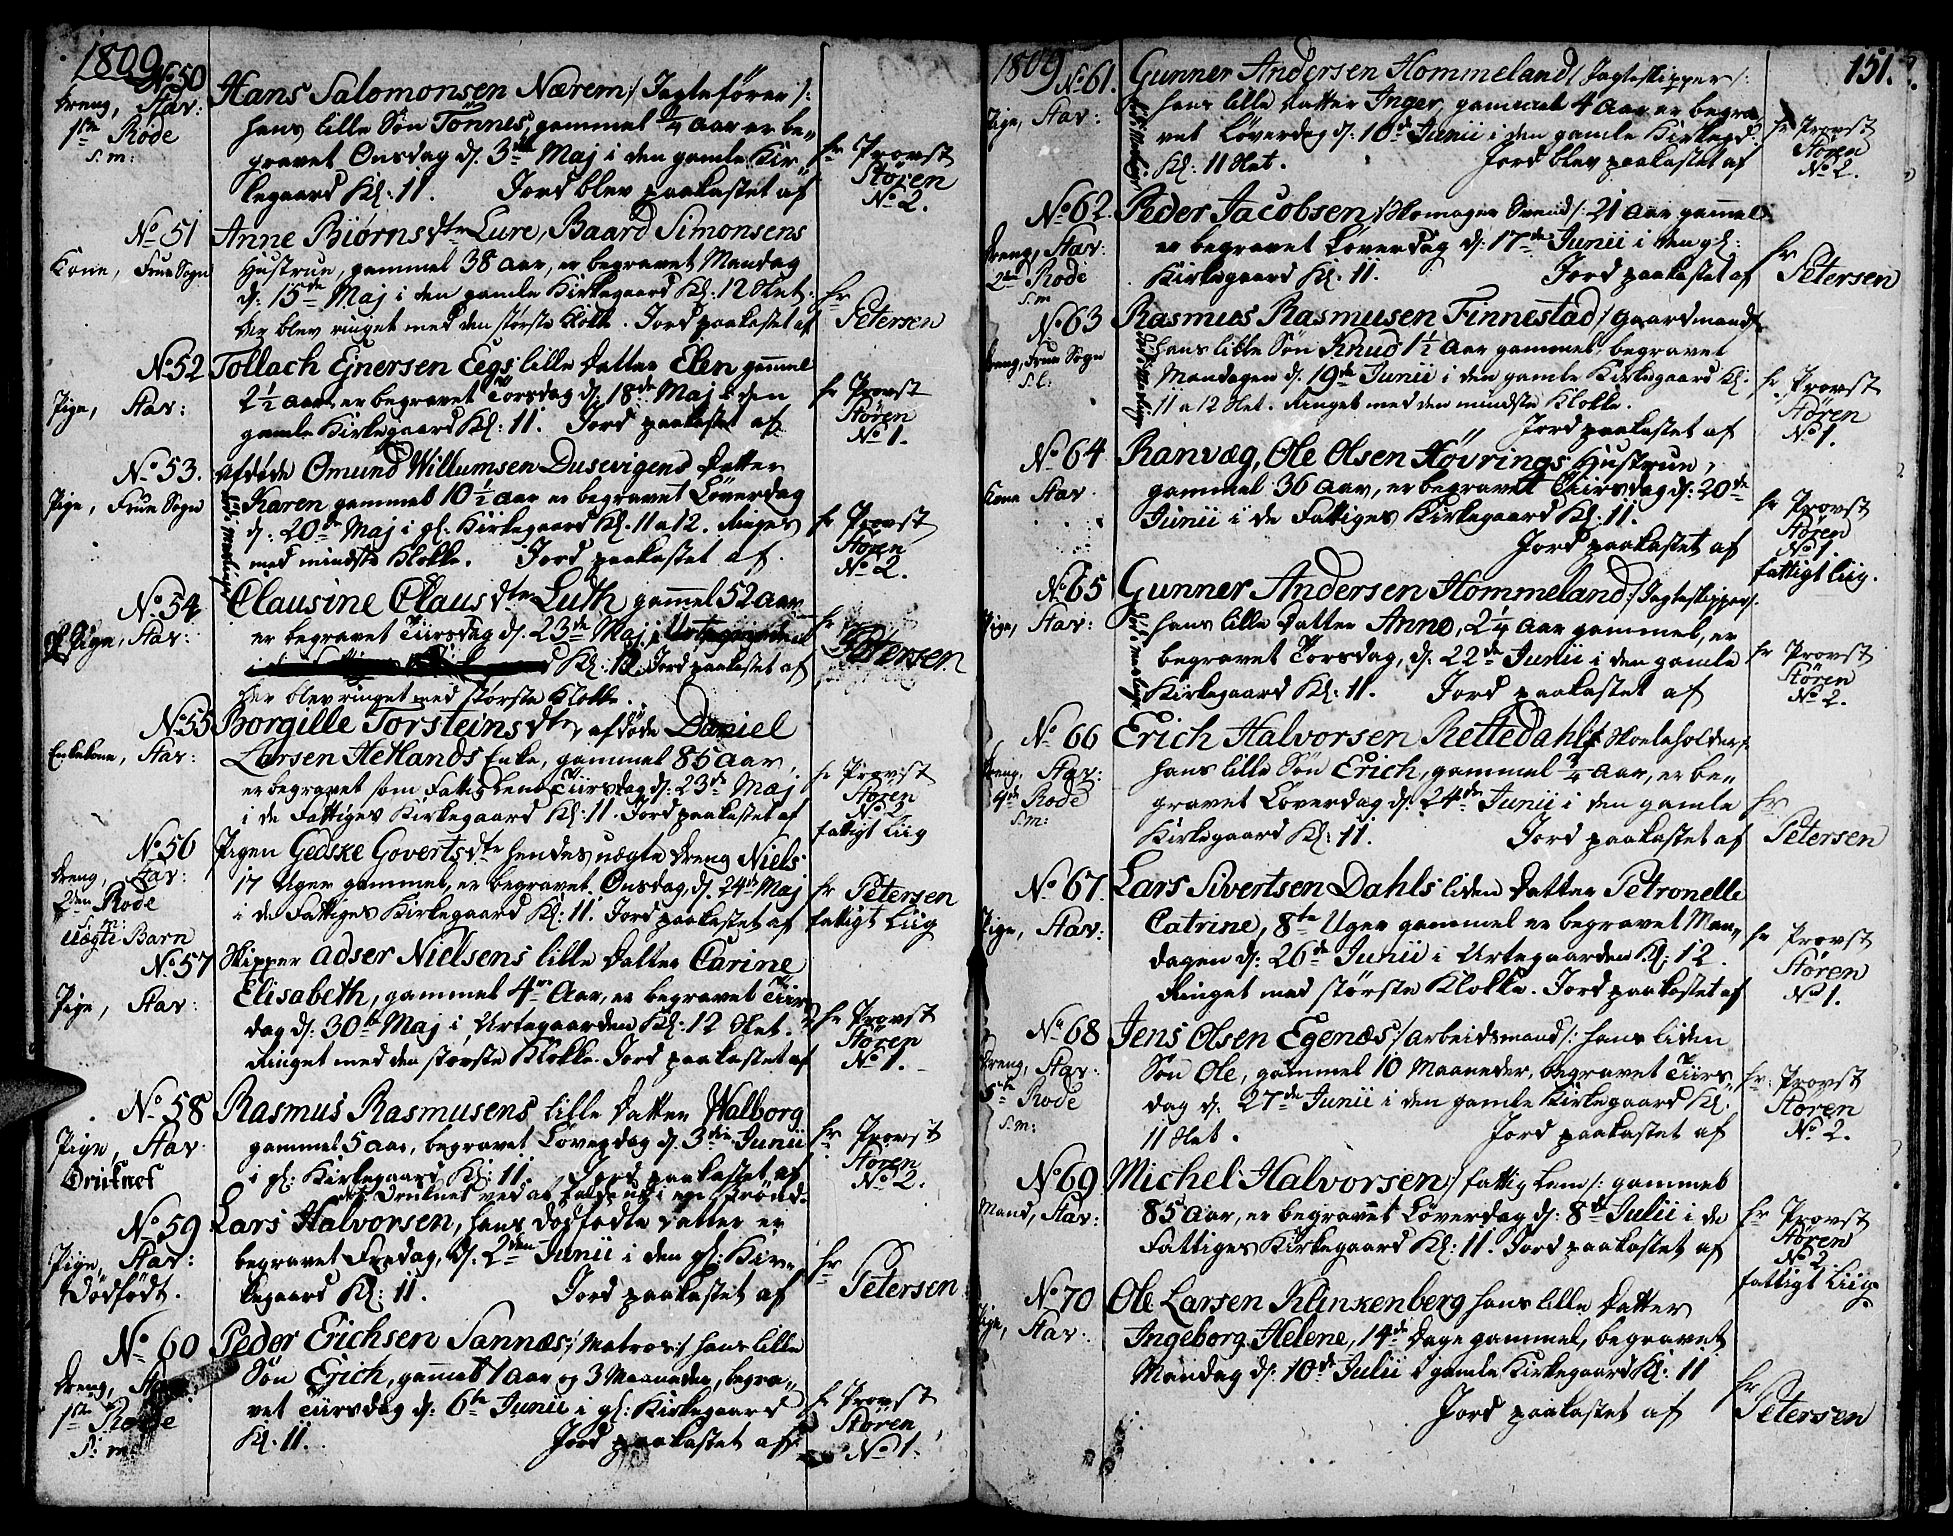 1809
No 50
Dreng, Stav:
1ste Rode
S:m:
Hans Salomonsen Nærem /: Jagtefører :/
hans lille Søn Tönnes, gammel 1/4 Aar er be„
gravet Onsdag d: 3de Maj i den gamle Kir„
kegaard Kl: 11. Jord blev paakastet af
Hr Provst
Stören
No 2.
No 51
Kone, Frue Sogn
Anne Biørnsdtr Lure, Baard Simonsens
Hustrue, gammel 38 Aar, er begravet Mandag
d: 15de Maj i den gamle Kirkegaard Kl: 12 Slet.
Der blev ringet med den største Klokke. Jord paakastet af
Hr
Petersen
No 52
Pige, Stav:
Tollach Ejnersen Eegs lille Datter Elen gammel
2 1/2 Aar er begravet Torsdag d: 18de Maj i den
gamle Kirkegaard Kl: 11. Jord paakastet af
Hr Provst
Stören
No 1.
No 53.
Pige, Frue Sogn
Afdøde Omund Willumsen Dusevigens Datter
Karen gammel 10 1/2 Aar er begravet Løverdag
d: 20de Maj i gl: Kirkegaard Kl. 11 a 12. Ringet
med mindste Klokke. Jord paakastet af
Hr Provst
Stören
No 2.
No 54
Pige, Stav:
Clausine Clausdtr Luth gammel 52 Aar
er begravet Tiirsdag d: 23de Maj
Kl: 12. Jord paakastet af
Der blev ringet med største Klokke.
Hr
Petersen
No 55
Enkekone, Stav:
Borgille Torsteinsdtr, afdöde Daniel
Larsen Hetlands Enke, gammel 85 Aar,
er begravet som Fattiglem Tiirsdag d: 23de Maj
i de Fattiges Kirkegaard Kl: 11. Jord paakastet af
Hr Provst
Stören
No 2
fattigt Liig
No 56
Dreng, Stav:
2den Rode
Uægte Barn
Pigen Gedske Govertsdtr hendes uægte Dreng Niels
17 Uger gammel, er begravet Onsdag, d: 24de Maj
i de Fattiges Kirkegaard Kl: 11. Jord paakastet af
Hr Petersen
fattigt Liig
No 57
Pige, Stav:
Skipper Adser Nielsens lille Datter Carine
Elisabeth, gammel 4re Aar, er begravet Tiirs
dag d: 30te Maj i Urtegaarden Kl: 12 Slet.
Ringet med den største Klokke. Jord paakastet af
Hr Provst
Stören
No 1.
No 58
Pige, Stav
Druknet
Rasmus Rasmusens lille Datter Walborg
gammel 5 Aar, begravet Løverdag d: 3die Junii
i gl: Kirkegaard Kl: 11. Jord paakastet af
Druknet ved at falde ud i en Brønd.
Hr Provst
Stören
No 2.
No 59
Pige, Stav:
Dödfödt.
Lars Halvorsen, hans dödfödte Datter er
begravet Fredag, d: 2den Junii i den gl: Kir„
kegaard Kl: 11. Jord paakastet af
Hr
Petersen
No 60
Dreng, Stav
1ste Rode
S: m:
Peder Erichsen Sannæs /: Matros :/ hans lille
Søn Erich, gammel 1 Aar og 3 Maaneder, begra„
vet Tiirsdag d: 6te Junii i gl: Kirkegaard
Kl: 11. Jord paakastet af
Hr Provst
Stören
No 1.
151.
1809
No 61.
Pige, Stav:
Gunner Andersen Hommeland /: Jagteskipper :/
hans lille Datter Inger, gammel 4 Aar er begra„
vet Løverdag d: 10de Junii i den gamle Kirkegd:
Kl: 11 Slet. Jord blev paakastet af
Hr Provst
Stören
No 2.
No 62.
Dreng, Stav:
2den Rode
S:m
Peder Jacobsen /: Skomager Svend :/ 21 Aar gammel
er begravet Løverdag d: 17de Junii i den gl:
Kirkegaard Kl: 11. Jord paakastet af
Hr
Petersen
No 63
Dreng, Frue Sogn
S:l:
Rasmus Rasmusen Finnestad /: Gaardmand :/
hans lille Søn Knud 1 1/2 Aar gammel, begravet
Mandagen d: 19de Junii i den gamle Kirkegaard Kl.
11 a 12 Slet. Ringet med den mindste Klokke.
Jord paakastet af
Hr Provst
Stören
No 1.
No 64
Kone Stav.
Ranvæg, Ole Olsen Høvrings Hustrue,
gammel 36 Aar, er begravet Tiirsdag d: 20de
Junii i de Fattiges Kirkegaard Kl: 11.
Jord paakastet af
Hr Provst
Stören
No 1.
fattigt Liig.
No 65
Pige, Stav:
Gunner Andersen Hommeland /: Jagteskipper :/
hans lille Datter Anne, 2 1/4 Aar gammel, er
begravet Torsdag, d: 22de Junii i den gamle
Kirkegaard Kl: 11. Jord paakastet af
Hr Provst
Stören
No 2.
No 66
Dreng, Stav:
4de Rode
S:m:
Erich Halvorsen Rettedahl /: Skoleholder :/
hans lille Søn Erich, gammel 3/4 Aar, er be„
gravet Løverdag d: 24de Junii i den gamle
Kirkegaard Kl: 11. Jord paakastet af
Hr
Petersen
No 67.
Pige, Stav:
Lars Sivertsen Dahls liden Datter Petronelle
Catrine, 8te Uger gammel er begravet Man„
dagen d: 26de Junii i Urtegaarden Kl: 12.
Ringet med største Klokke. Jord paakastet af
Hr Provst
Stören
No 1.
No 68
Dreng, Stav:
Rode
S:m:
Jens Olsen Egenæs /: Arbeidsmand :/ hans liden
Søn Ole, gammel 10 Maaneder, begravet Tiirs„
dag d: 27de Junii i den gamle Kirkegaard Kl.
11 Slet. Jord paakastet af
Hr: Provst
Stören
No 2.
No 69
Mand, Stav:
Michel Halvorsen /: fattig Lem :/ gammel
85 Aar, er begravet Løverdag d: 8de Julii i de
Fattiges Kirkegaard Kl: 11. Jord paakastet af
Hr Provst
Stören
No 2
fattigt Liig
No 70
Pige, Stav:
Ole Larsen Klinkenberg hans lille Datter
Ingeborg Helene, 14de Dage gammel, begravet
Mandag d: 10de Julii i gamle Kirkegaard Kl: 11
Jord paakastet af
Hr
Petersen